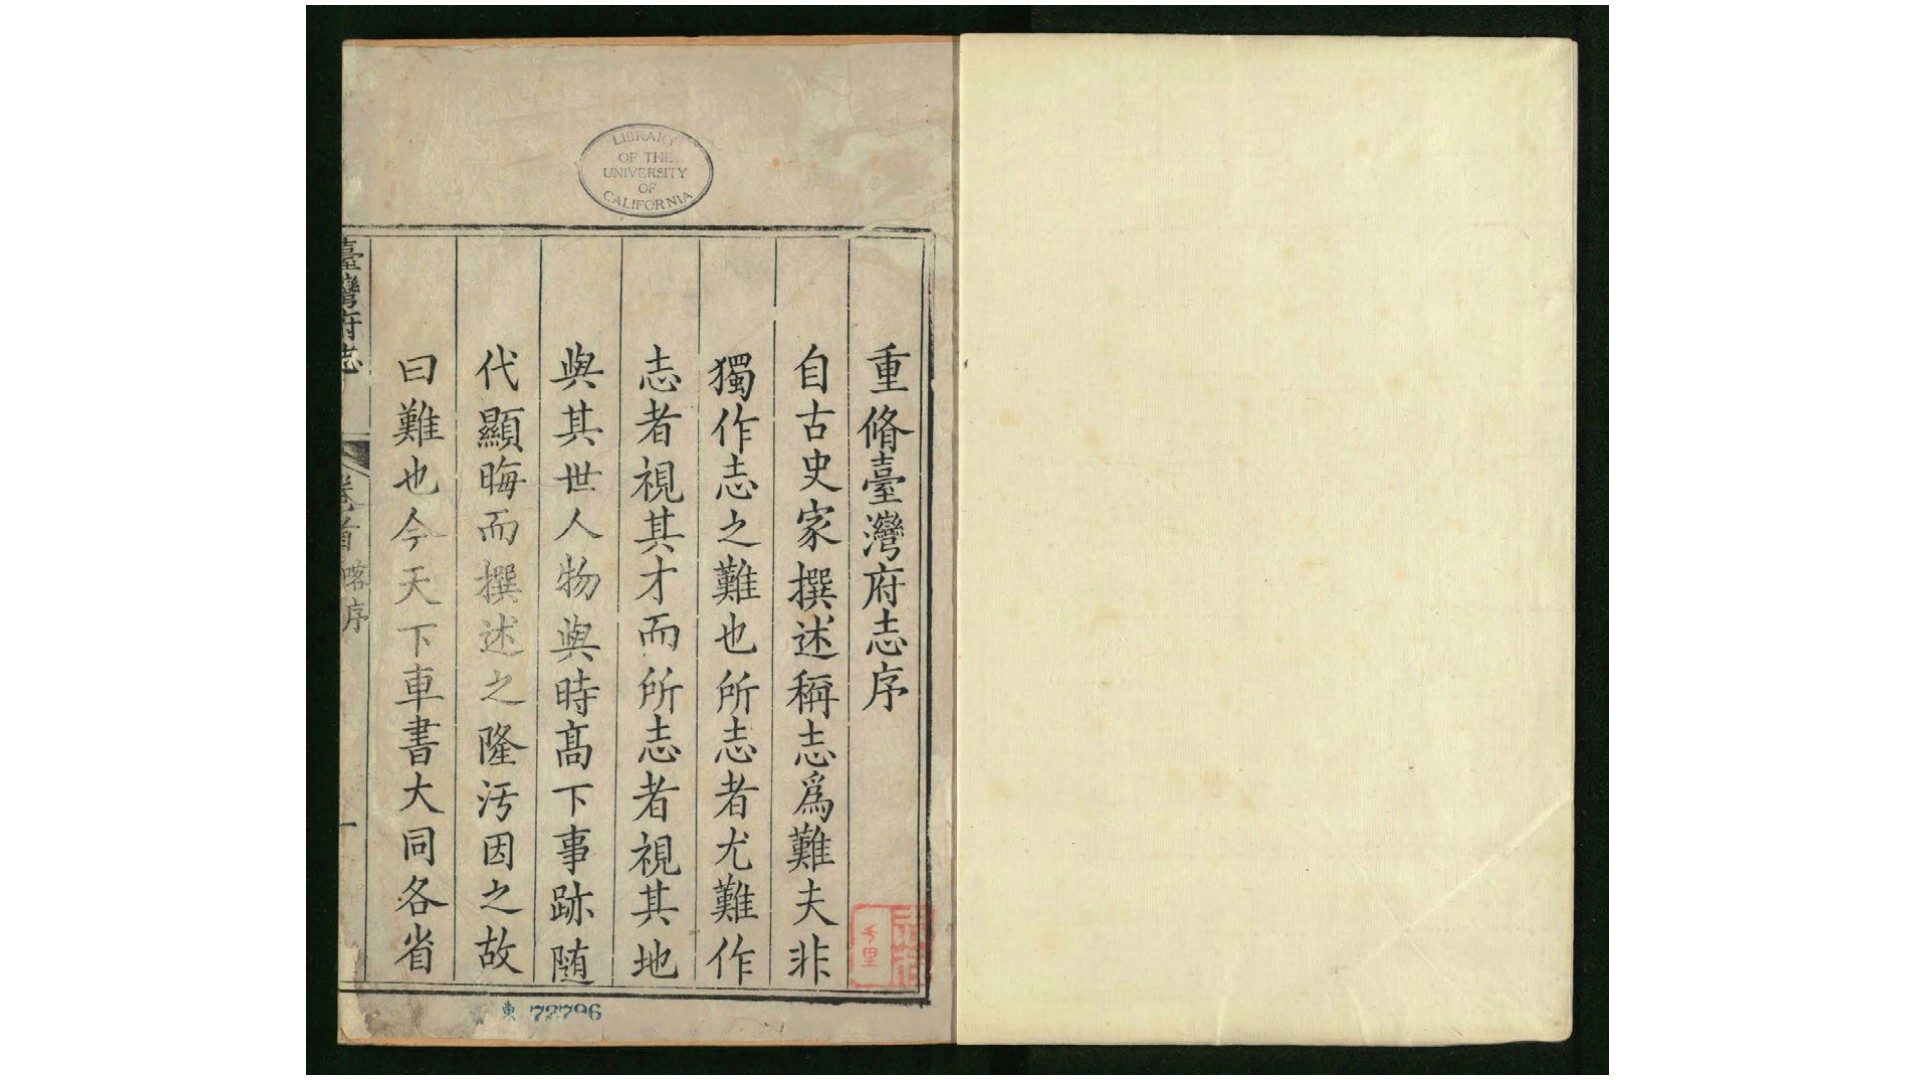 LIBRARY
OF THE
UNIVERSITY
OF
CALIFORNIA
重脩臺灣府志序
自古史家撰述稱志爲難夫非
獨作志之難也所志者尤難作
志者視其才而所志者視其地
與其世人物與時髙下事跡随
代顯晦而撰述之隆汚因之故
曰難也今天下車書大同各省
臺灣府志
卷首
喀序
一
千里
東 72796